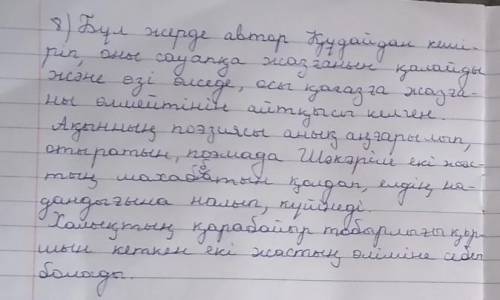 8) Бұл жерде автор Құдайдан кеші-
ріп, оны сауапқа жазғанын қалайды
және өзі өлседе, осы қағазға жазға-
ны өлмейтінін айтқысы келген.
Ақынның поэзиясы анық аңғарылып,
отыратын, поэмада Шәкәрім екі жас-
тың махаббатын қолдап, елдің на-
дандығына налып, күйінеді.
Халықтың қарабайыр тобырлығы құр-
мын кеткен екі жастың өліміне себеп
болады.